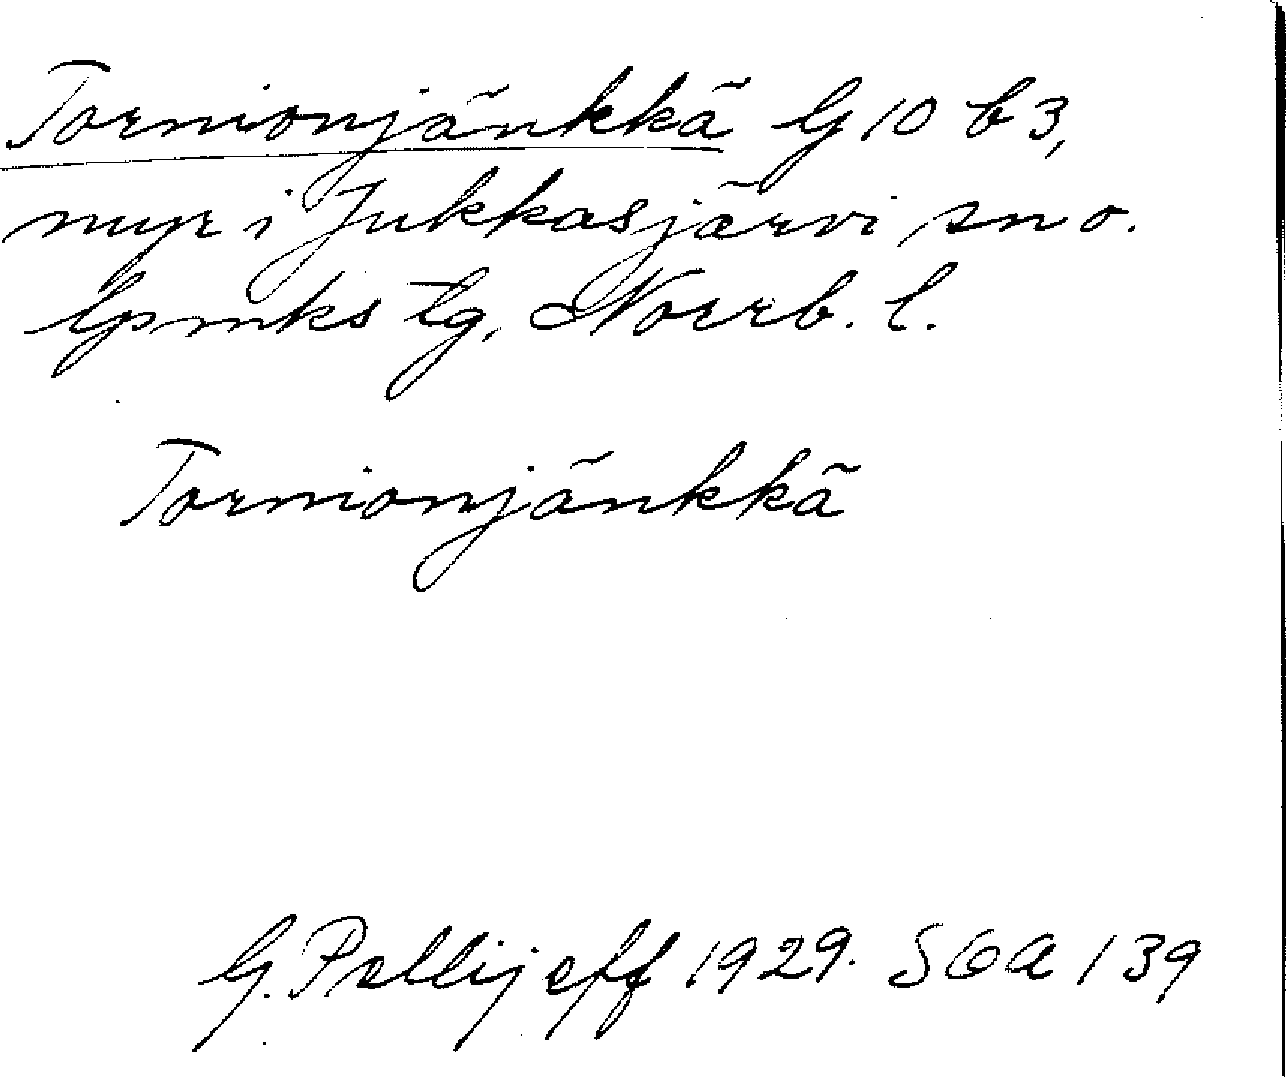 Tornionjänkkä G 10 b 3,
myr i Jukkasjärvi sn o.
lpmks tg, Norrb. l.
Tornionjänkkä
G. Pellijeff 1929. SOA 139